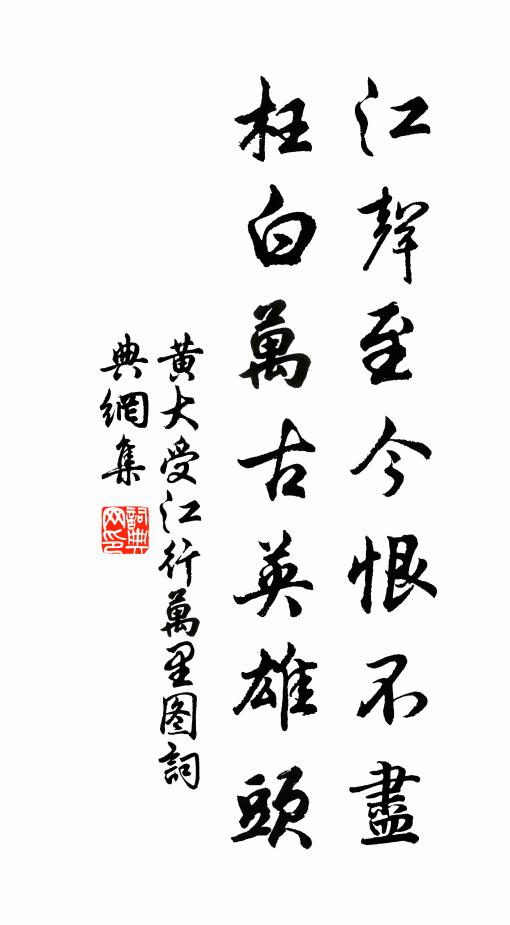 江聲至今恨不盡
枉白萬古英雄頭
黄大受江行萬里图詞
典網集
詞典網印